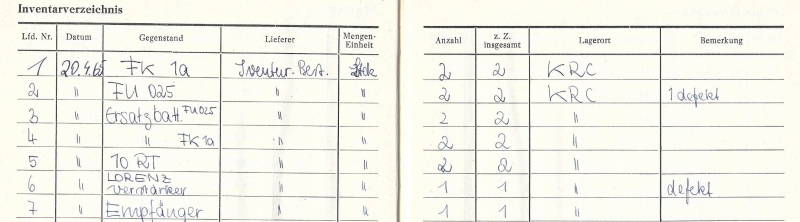 Inventarverzeichnis
Lfd. Nr. Datum Gegenstand Lieferer Mengen-Einheit Anzahl z. Z. insgesamt Lagerort Bemerkung
1 20.4.65 FK 1a Inventur-Best. Stck 2 2 KRC
2 " FU 025 " " 2 2 KRC 1 defekt
3 " Ersatzbatt. FU 025 " " 2 2 "
4 " " FK 1a " " 2 2 "
5 " 10 RT " " 2 2 "
6 " LORENZ Verstärker " " 1 1 " defekt
7 " Empfänger " " 1 1 "